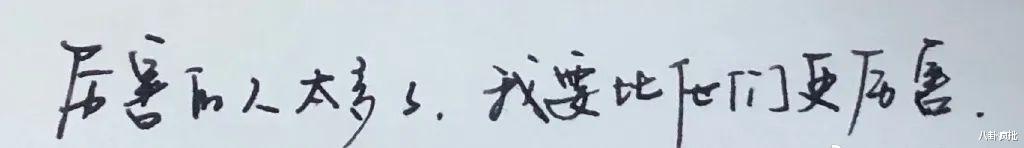 厉害的人太多了.我要比他们更厉害.
八卦疯批